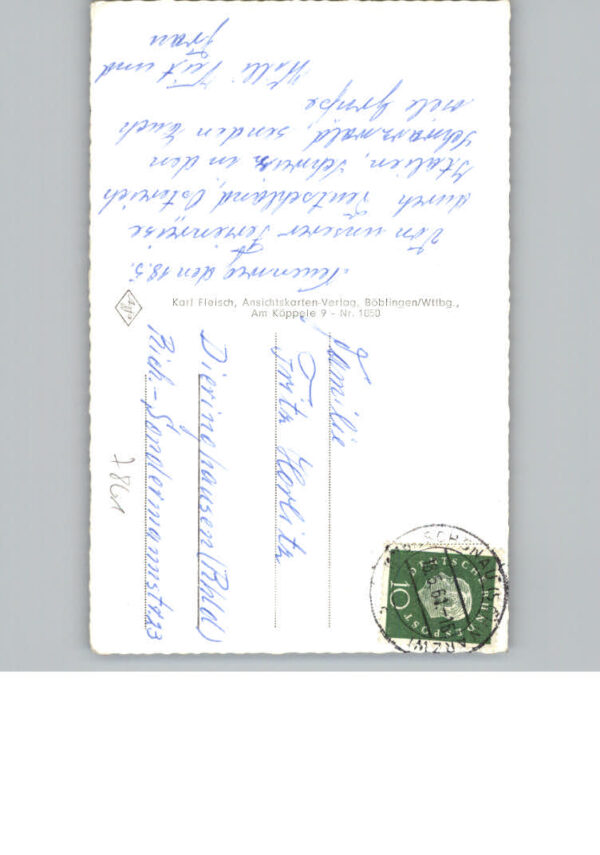 Neuenweg den 18.5.
Von unserer Ferienreise
durch Deutschland, Österreich
Italien, Schweiz in den
Schwarzwald, senden Euch
viele Grüße
Willi Veit und
Frau
Karl Fleisch, Ansichtskarten-Verlag, Böblingen/Wttbg.,
Am Käppele 9 - Nr. 1050
Familie
Fritz
Dieringhausen (Rhld)
Rich.-Sondermannstr. 23
DEUTSCHE BUNDESPOST
10